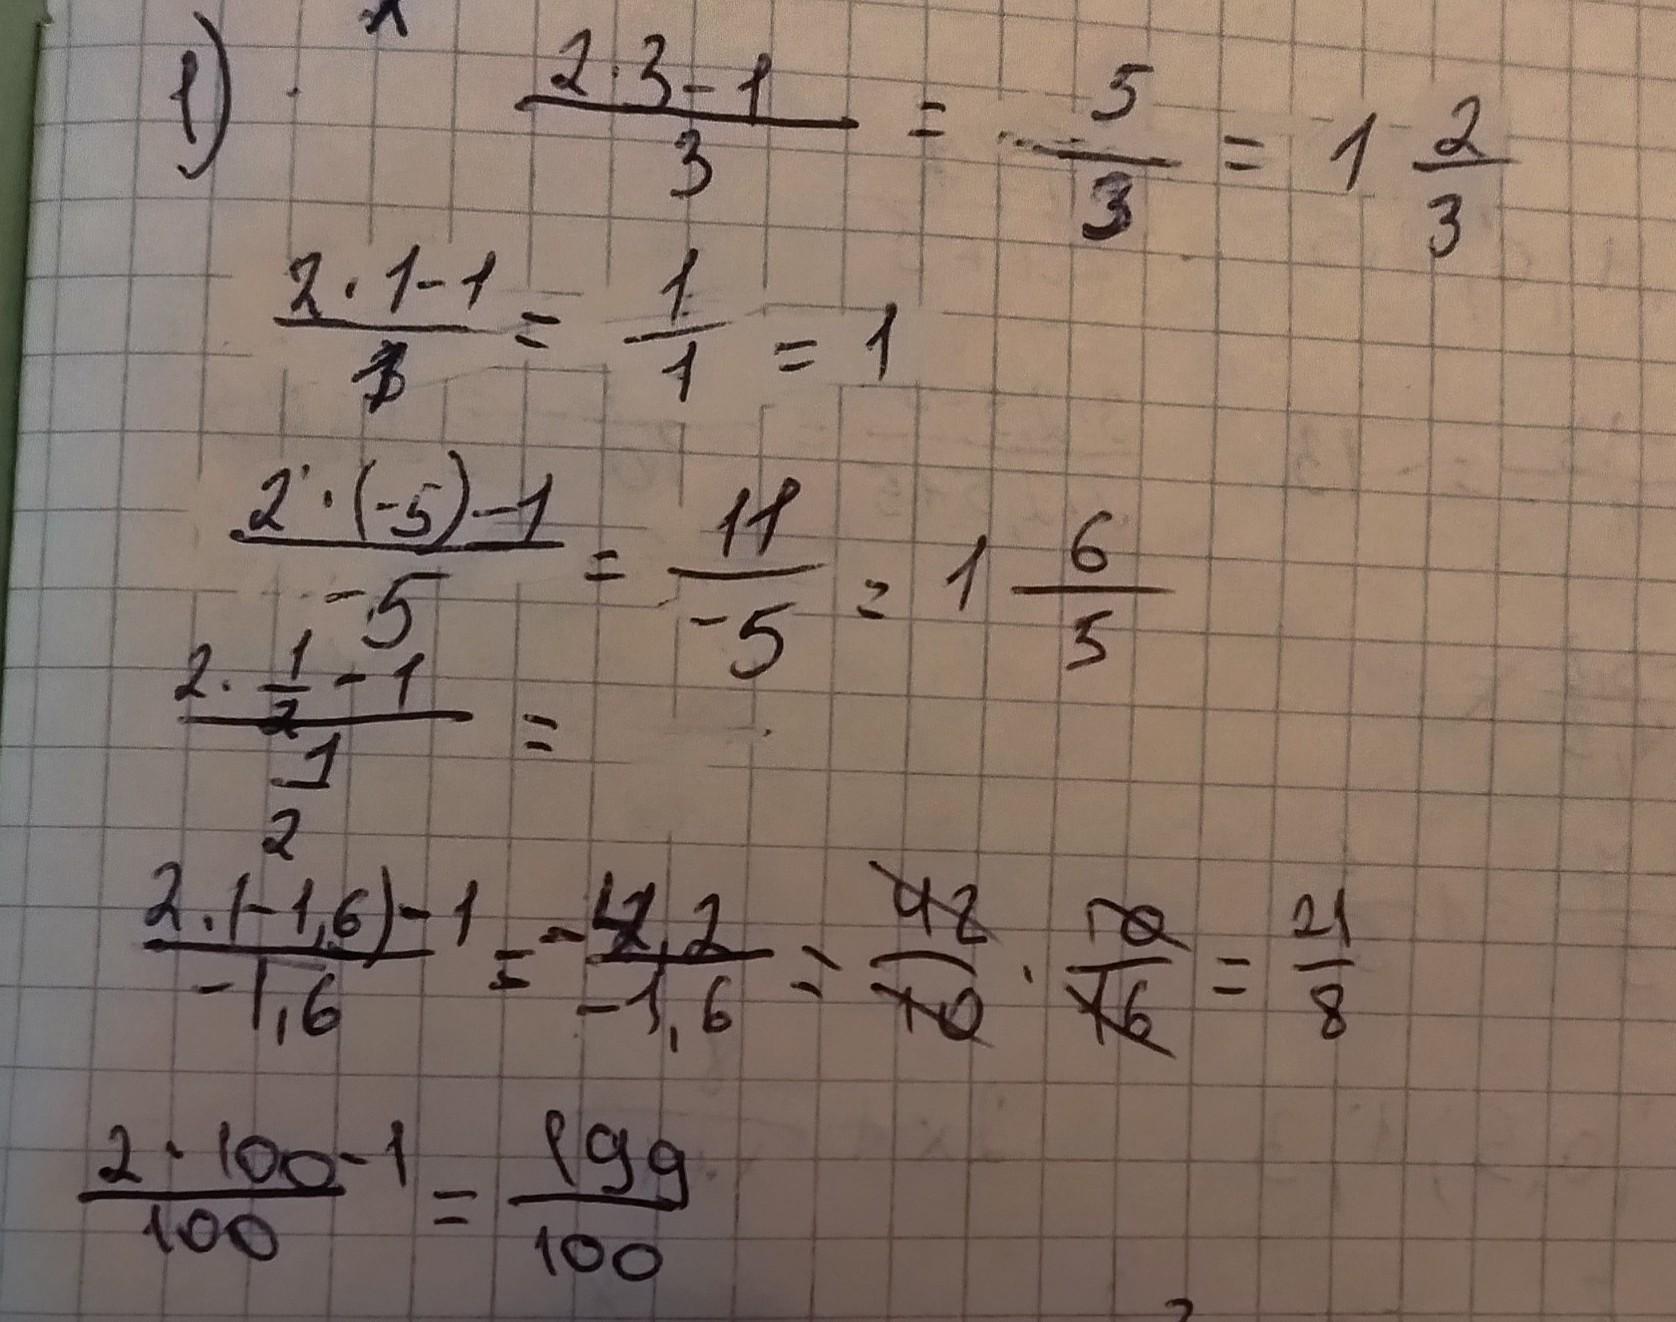 x
1) (2·3-1)/3 = 5/3 = 1 2/3
(2·1-1)/1 = 1/1 = 1
(2·(-5)-1)/-5 = 11/-5 = 1 6/5
(2·1/2-1)/(1/2) =
(2·(-1,6)-1)/-1,6 = -4,2/-1,6 = 42/10 · 10/16 = 21/8
(2·100-1)/100 = 199/100